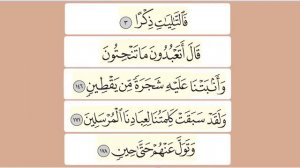 فَٱلتَّٰلِيَٰتِ ذِكْرًا ٣
قَالَ أَتَعْبُدُونَ مَا تَنْحِتُونَ
وَأَنۢبَتْنَا عَلَيْهِ شَجَرَةً مِّن يَقْطِينٍ ١٤٦
وَلَقَدْ سَبَقَتْ كَلِمَتُنَا لِعِبَادِنَا ٱلْمُرْسَلِينَ ١٧١
وَتَوَلَّ عَنْهُمْ حَتَّىٰ حِينٍ ١٧٨